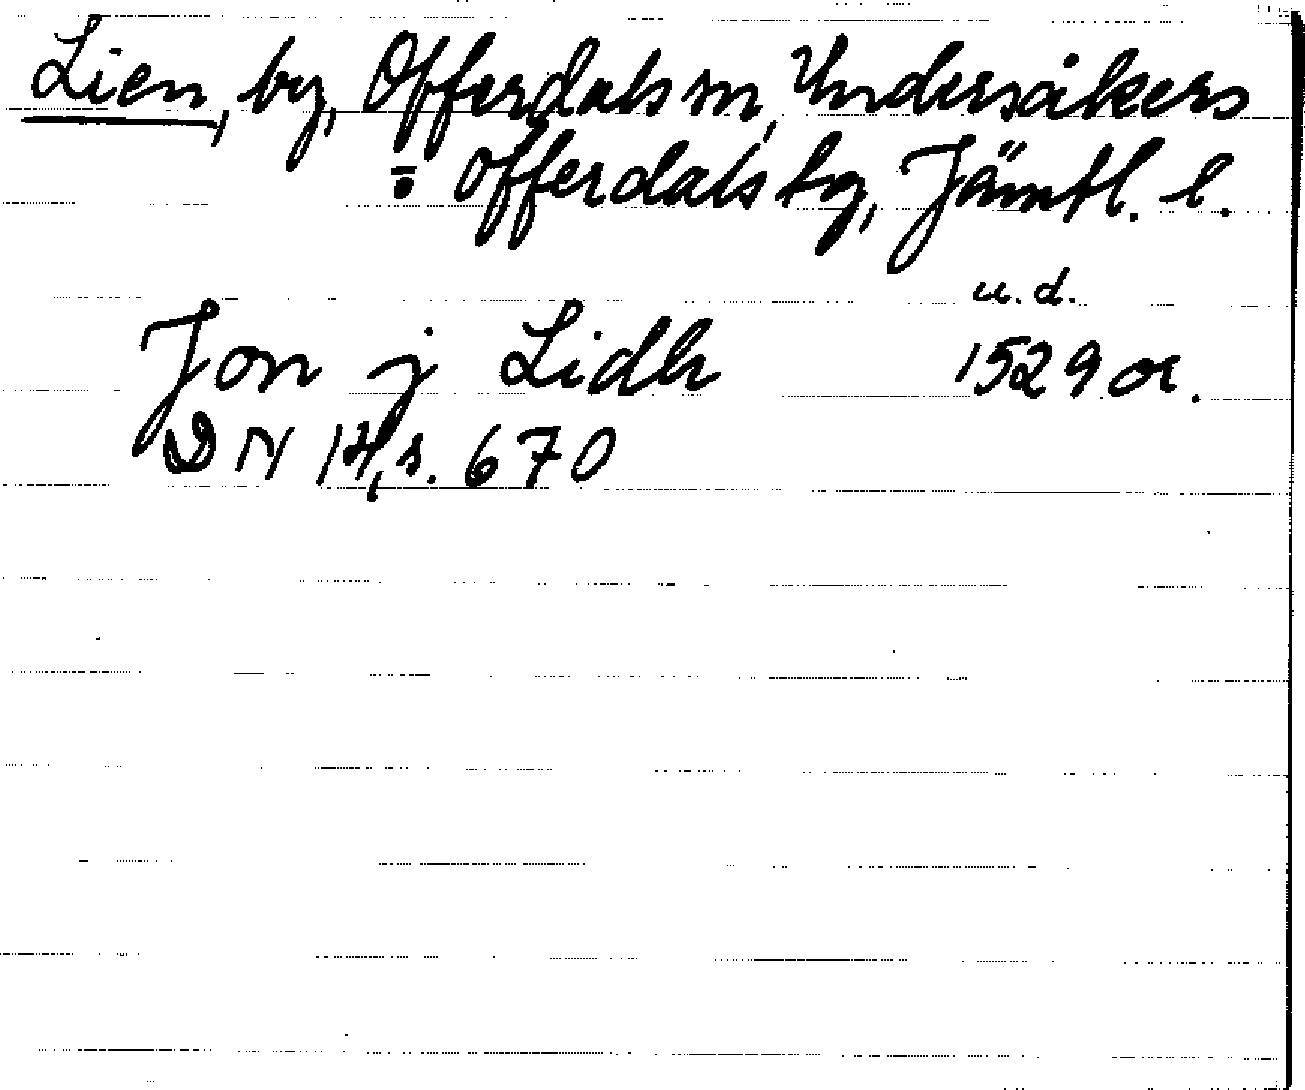 Lien, by, Offerdals sn, Undersåkers
o. Offerdals tg, Jämtl. l.
u.d.
Jon j Lidh 1529 or.
DN 14, s. 670